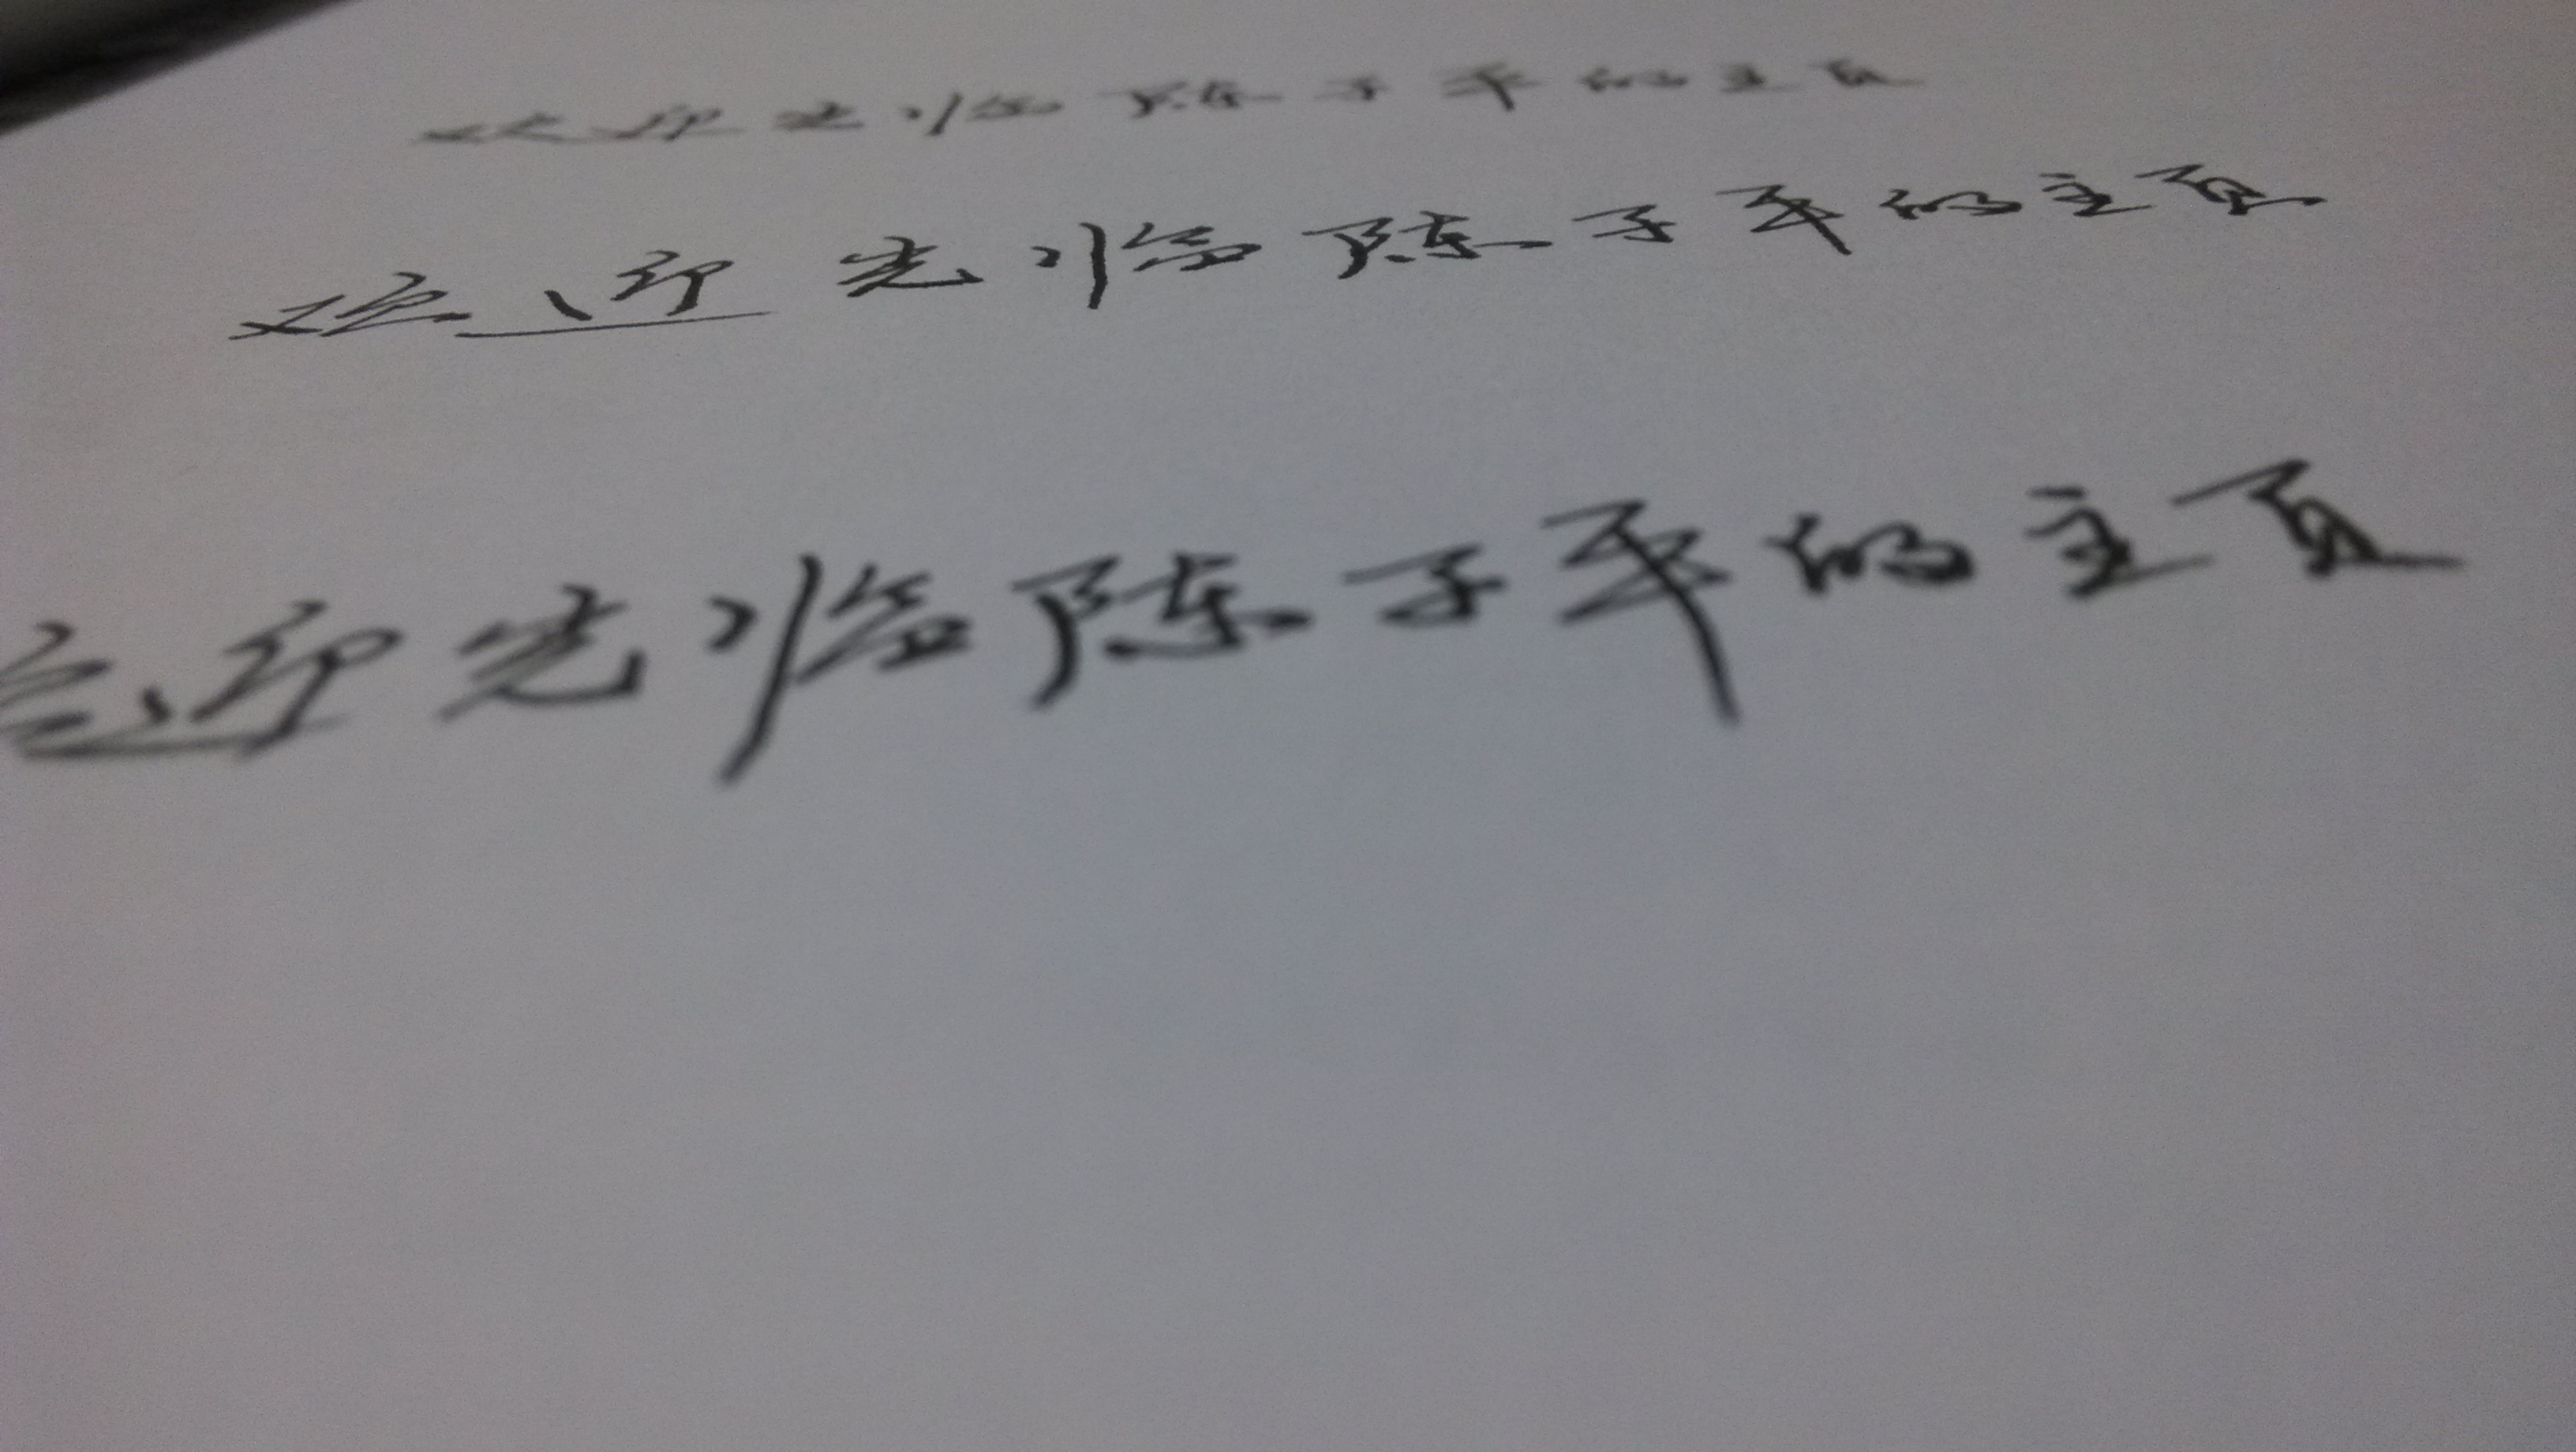 欢迎光临陈子平的主页
欢迎光临陈子平的主页
迎光临陈子平的主页